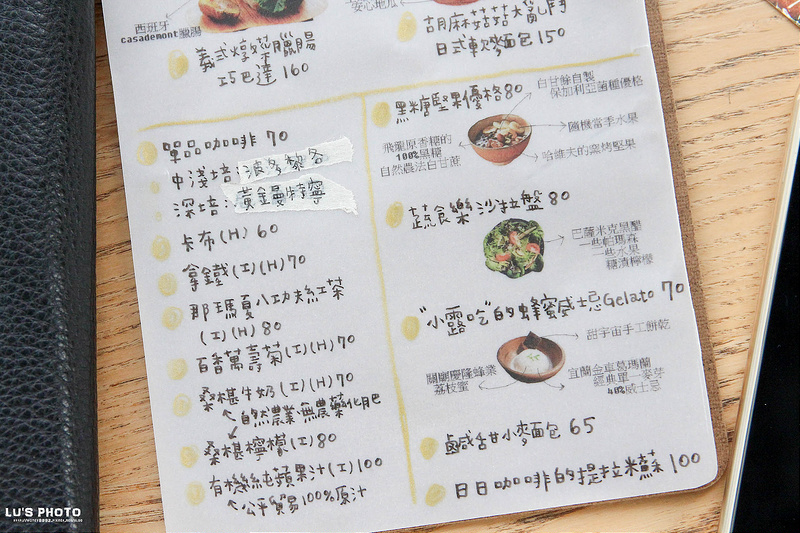 西班牙
casademont臘腸
安心地瓜
義式燉菜臘腸
巧巴達 160
胡麻菇菇大亂鬥
日式軟麵包 150
單品咖啡 70
中淺培:波多黎各
深培:黃金曼特寧
卡布(H) 60
拿鐵(I)(H)70
那瑪夏八功夫紅茶
(I)(H) 80
百香萬壽菊(I)(H)70
桑椹牛奶(I)(H)70
自然農業無農藥化肥
桑椹檸檬(I)80
有機純蘋果汁(I)100
公平貿易100%原汁
黑糖堅果優格80
白甘餘自製
保加利亞菌種優格
隨機當季水果
哈維夫の窯烤堅果
飛龍原香糖的
100%黑糖
自然農法白甘蔗
蔬食樂沙拉盤 80
巴薩米克黑醋
一些帕瑪森
一些水果
糖漬檸檬
"小露吃"的蜂蜜威士忌Gelato 70
甜宇宙手工餅乾
關廟慶隆蜂業
荔枝蜜
宜蘭金車葛瑪蘭
經典單一麥芽
40%威士忌
鹹甜小麥麵包 65
日日咖啡的提拉米蘇 100
LU'S PHOTO